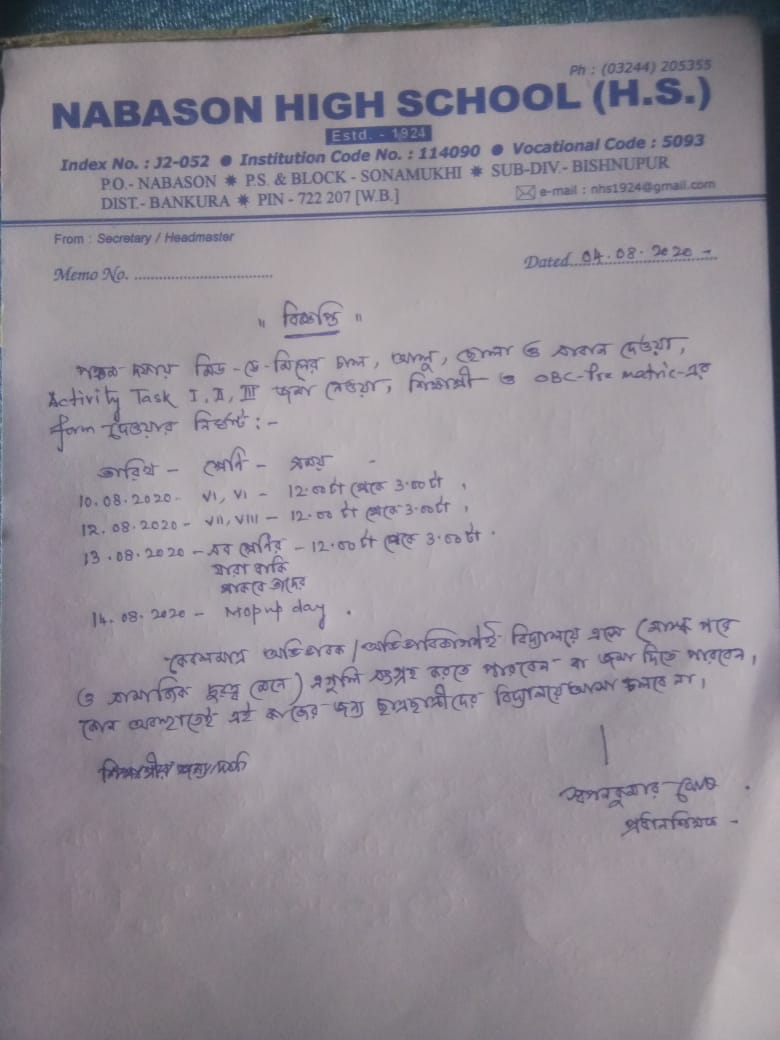 Ph : (03244) 205355
NABASON HIGH SCHOOL (H.S.)
Estd. - 1924
Index No. : J2-052 ● Institution Code No. : 114090 ● Vocational Code : 5093
P.O.- NABASON ✱ P.S. & BLOCK - SONAMUKHI ✱ SUB-DIV.- BISHNUPUR
DIST.- BANKURA ✱ PIN - 722 207 [W.B.]
e-mail : nhs1924@gmail.com
From : Secretary / Headmaster
Dated 04.08.2020 -
Memo No. ................................
" বিজ্ঞপ্তি "
পঞ্চম দফায় মিড-ডে-মিলের চাল, আলু, ছোলা ও সাবান দেওয়া,
Activity Task I, II, III জমা নেওয়া, শিক্ষাশ্রী ও OBC-Pre matric-এর
form দেওয়ার নির্ঘন্ট :-
তারিখ - শ্রেণি - সময় -
10.08.2020- VI, VI - 12.00টা থেকে 3.00টা ,
12.08.2020 - VII, VIII - 12.00 টা থেকে 3.00টা ,
13.08.2020 - সব শ্রেণির - 12.00টা থেকে 3.00টা .
যারা বাকি
থাকবে তাদের
14.08.2020 - Mopup day .
কেবলমাত্র অভিভাবক/অভিভাবিকাগণই বিদ্যালয়ে এসে (মাস্ক পরে
ও সামাজিক দূরত্ব মেনে) এগুলি সংগ্রহ করতে পারবেন বা জমা দিতে পারবেন,
কোন অবস্থাতেই এই কাজের জন্য ছাত্রছাত্রীদের বিদ্যালয়ে আসা চলবে না।
স্বপনকুমার
প্রধানশিক্ষক -